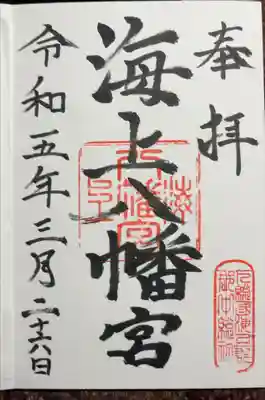 奉拝
海上八幡宮
令和五年三月二十六日